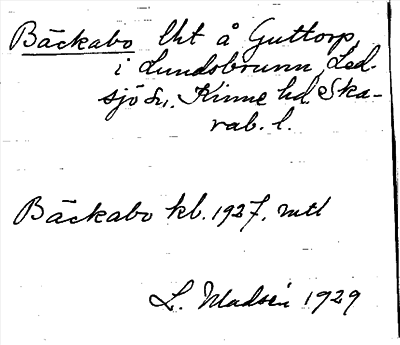 Bäckabo lht å Guttorp,
i Lundsbrunn, Led-
sjö sn. Kinne hd. Ska-
rab. l.
Bäckabo kb. 1927, mtl
L. Madsén 1929